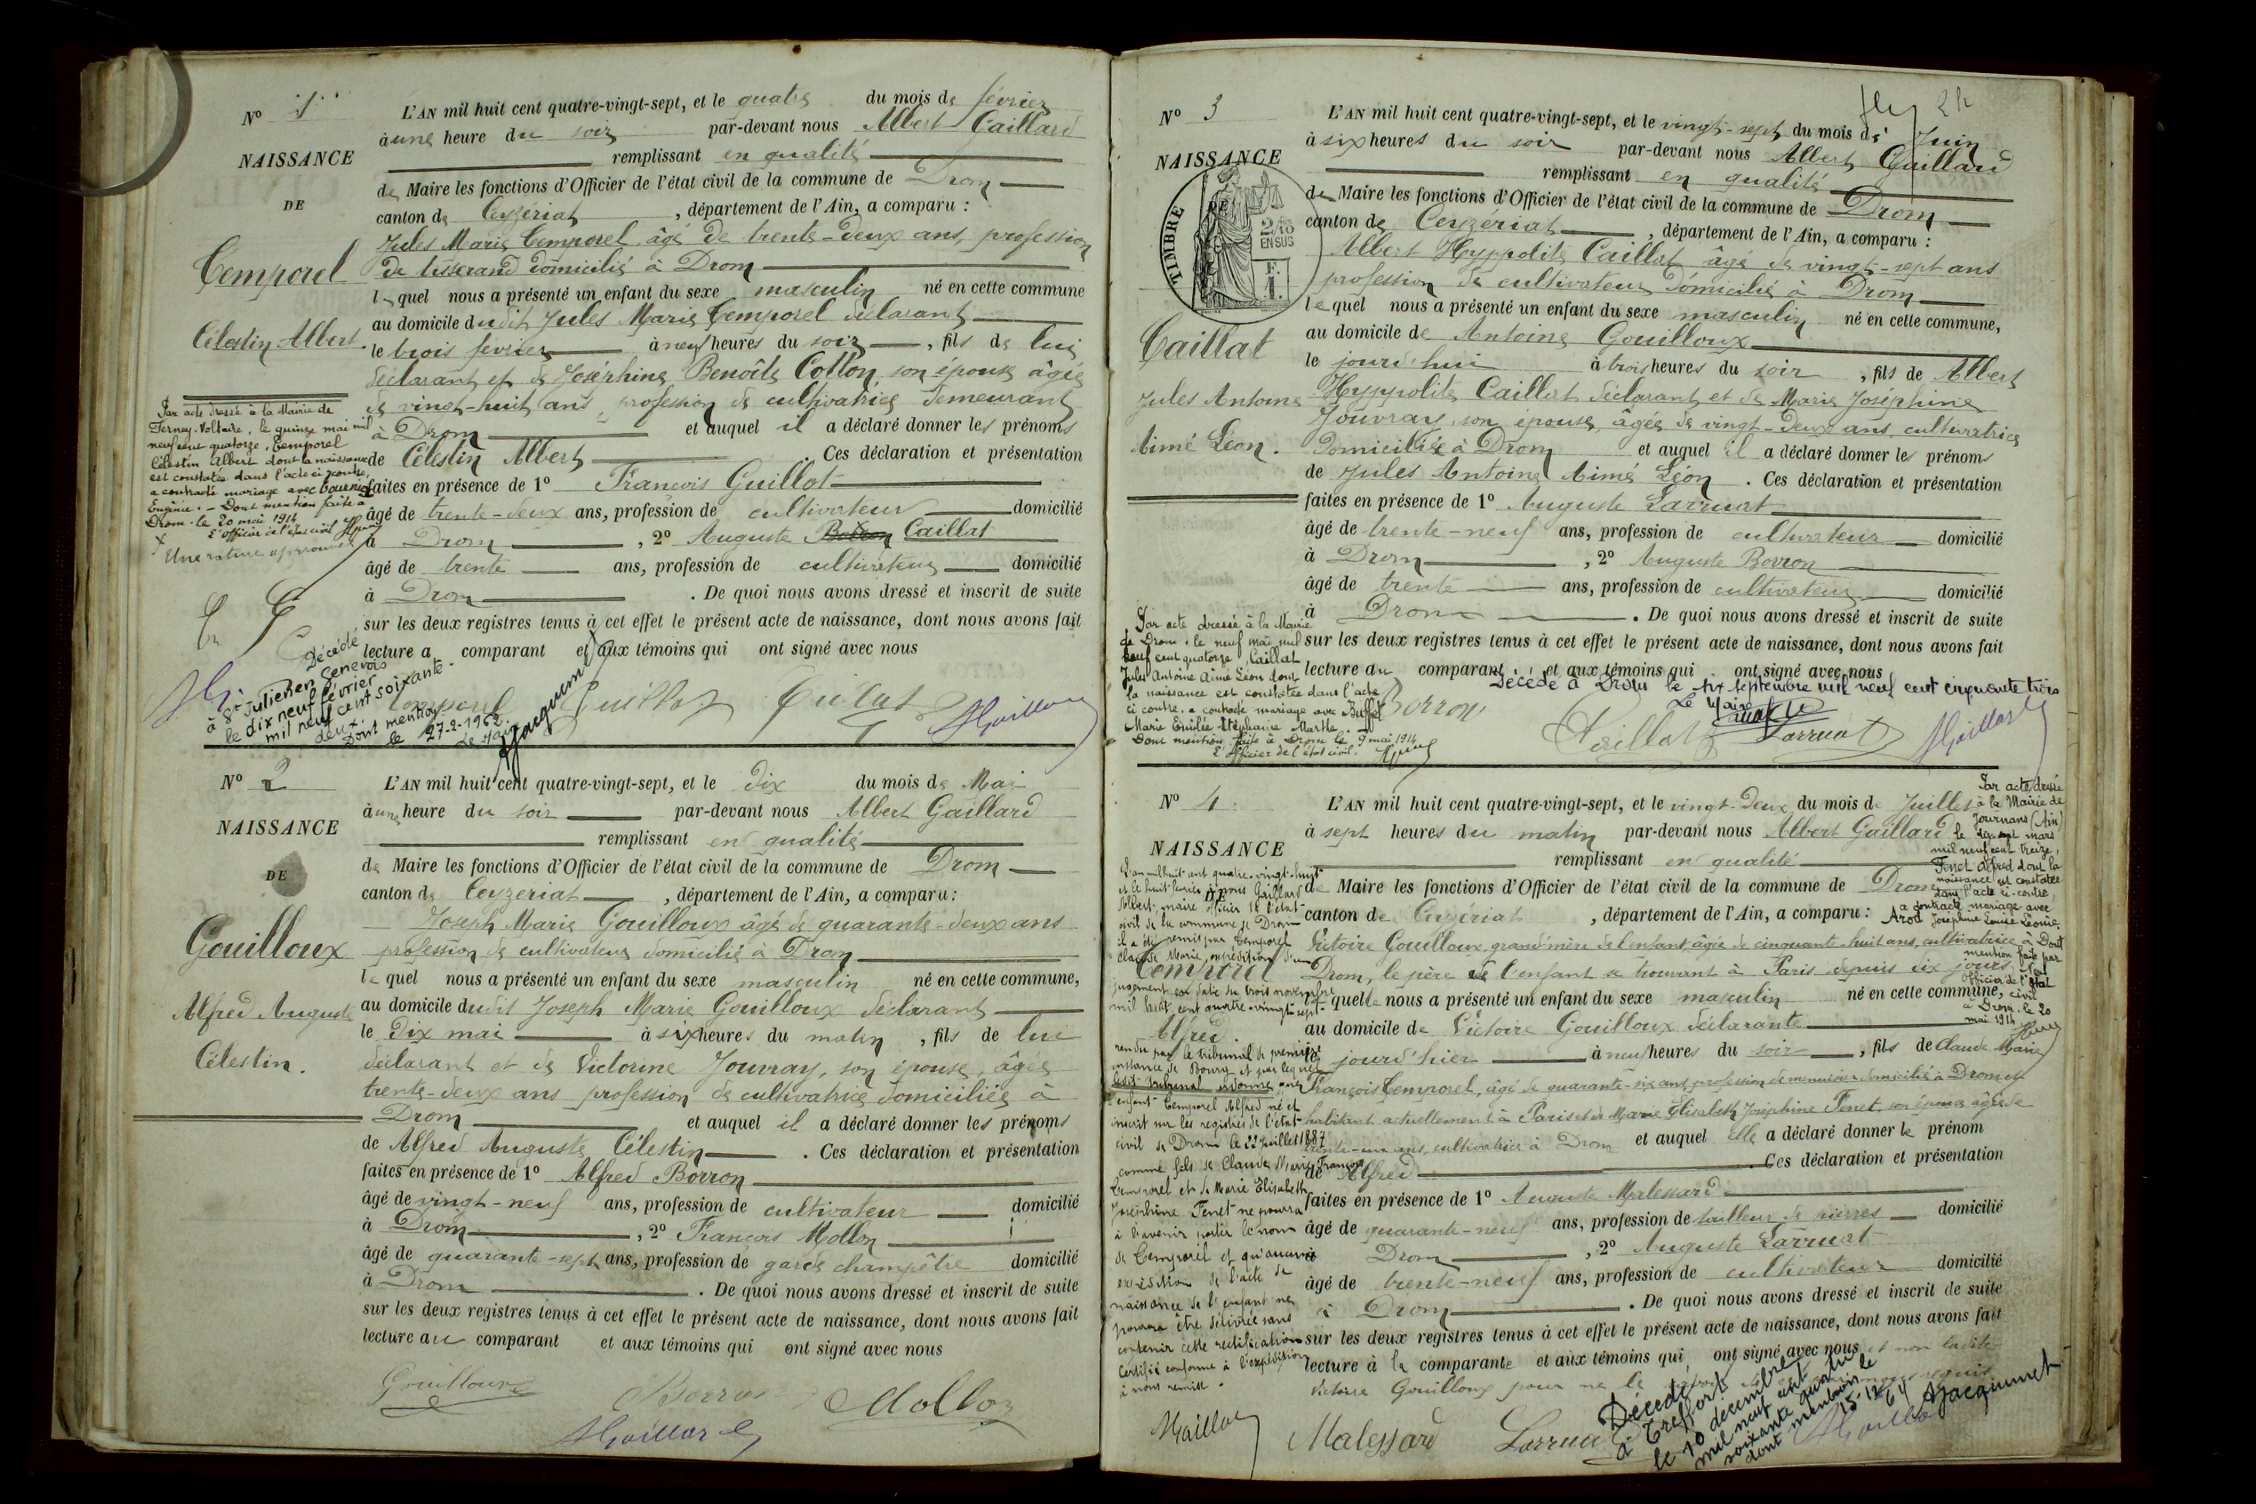 N° 1
NAISSANCE
DE
Temporel
Célestin Albert.
L'AN mil huit cent quatre-vingt-sept, et le quatre du mois de février
à une heure du soir par-devant nous Albert Gaillard
remplissant en qualité
de Maire les fonctions d'Officier de l'état civil de la commune de Drom
canton de Ceyzériat, département de l'Ain, a comparu :
Jules Marie Temporel âgé de trente-deux ans, profession
de tisserand domicilié à Drom
lequel nous a présenté un enfant du sexe masculin né en cette commune
au domicile dudit Jules Marie Temporel déclarant
le trois février à neuf heures du soir, fils de lui
déclarant et de Joséphine Benoîte Cotton, son épouse âgée
de vingt-huit ans, profession de cultivatrice demeurant
à Drom et auquel il a déclaré donner les prénoms
de Célestin Albert. Ces déclaration et présentation
faites en présence de 1° François Guillot
âgé de trente-deux ans, profession de cultivateur domicilié
à Drom, 2° Auguste Borron Caillat
âgé de trente ans, profession de cultivateur domicilié
à Drom. De quoi nous avons dressé et inscrit de suite
sur les deux registres tenus à cet effet le présent acte de naissance, dont nous avons fait
lecture a comparant et aux témoins qui ont signé avec nous
Par acte dressé à la Mairie de
Ferney-Voltaire, le quinze mai mil
neuf cent quatorze, Temporel
Célestin Albert dont la naissance
est constatée dans l'acte ci-contre,
a contracté mariage avec Tournier
Eugénie. – Dont mention faite à
Drom le 20 mai 1914
L'officier de l'état civil
X Une rature approuvée
Décédé
à St Julien en Genevois
le dix neuf février
mil neuf cent soixante-
deux.
Dont mention
le 27-2-1962.
Le Maire
Temporel Guillot Caillat AGaillard
N° 2
NAISSANCE
DE
Gouilloux
Alfred Auguste
Célestin.
L'AN mil huit cent quatre-vingt-sept, et le dix du mois de Mai
à une heure du soir par-devant nous Albert Gaillard
remplissant en qualité
de Maire les fonctions d'Officier de l'état civil de la commune de Drom
canton de Ceyzeriat, département de l'Ain, a comparu :
Joseph Marie Gouilloux âgé de quarante-deux ans
profession de cultivateur domicilié à Drom
lequel nous a présenté un enfant du sexe masculin né en cette commune,
au domicile dudit Joseph Marie Gouilloux déclarant
le dix mai à six heures du matin, fils de lui
déclarant et de Victorine Jouvray, son épouse, âgée
trente-deux ans profession de cultivatrice domiciliée à
Drom et auquel il a déclaré donner les prénoms
de Alfred Auguste Célestin. Ces déclaration et présentation
faites en présence de 1° Alfred Borron
âgé de vingt-neuf ans, profession de cultivateur domicilié
à Drom, 2° François Mollon
âgé de quarante-sept ans, profession de garde champêtre domicilié
à Drom. De quoi nous avons dressé et inscrit de suite
sur les deux registres tenus à cet effet le présent acte de naissance, dont nous avons fait
lecture au comparant et aux témoins qui ont signé avec nous
Gouilloux Borron Mollon
AGaillard
N° 3
NAISSANCE
DE
TIMBRE
2/10
EN SUS
F.
1.
Caillat
Jules Antoine
Aimé Léon.
L'AN mil huit cent quatre-vingt-sept, et le vingt-sept du mois de Juin
à six heures du soir par-devant nous Albert Gaillard
remplissant en qualité
de Maire les fonctions d'Officier de l'état civil de la commune de Drom
canton de Ceyzériat, département de l'Ain, a comparu :
Albert Hyppolite Caillat âgé de vingt-sept ans
profession de cultivateur domicilié à Drom
lequel nous a présenté un enfant du sexe masculin né en cette commune,
au domicile de Antoine Gouilloux
le jourd'hui à trois heures du soir, fils de Albert
Hyppolite Caillat déclarant et de Marie Joséphine
Jouvray, son épouse, âgée de vingt-deux ans, cultivatrice
domiciliée à Drom et auquel il a déclaré donner les prénoms
de Jules Antoine Aimé Léon. Ces déclaration et présentation
faites en présence de 1° Auguste Larruat
âgé de trente-neuf ans, profession de cultivateur domicilié
à Drom, 2° Auguste Borron
âgé de trente ans, profession de cultivateur domicilié
à Drom. De quoi nous avons dressé et inscrit de suite
sur les deux registres tenus à cet effet le présent acte de naissance, dont nous avons fait
lecture au comparant et aux témoins qui ont signé avec nous
Par acte dressé à la Mairie
de Drom, le neuf mai mil
neuf cent quatorze, Caillat
Jules Antoine Aimé Léon dont
la naissance est constatée dans l'acte
ci contre, a contracté mariage avec Buffet
Marie Emilie Stéphanie Marthe.
Dont mention faite à Drom le 9 mai 1914
L'officier de l'état civil.
Décédé à Drom le six septembre mil neuf cent cinquante trois
Le Maire
Borron Caillat Larruat AGaillard
N° 4
NAISSANCE
DE
Temporel
Alfred.
L'AN mil huit cent quatre-vingt-sept, et le vingt-deux du mois de Juillet
à sept heures du matin par-devant nous Albert Gaillard
remplissant en qualité
de Maire les fonctions d'Officier de l'état civil de la commune de Drom
canton de Ceyzériat, département de l'Ain, a comparu :
Victoire Gouilloux grand'mère de l'enfant âgée de cinquante-huit ans, cultivatrice à
Drom, le père de l'enfant se trouvant à Paris depuis dix jours
quelle nous a présenté un enfant du sexe masculin né en cette commune,
au domicile de Victoire Gouilloux déclarante
le jourd'hier à neuf heures du soir, fils de Claude Marie
François Temporel, âgé de quarante-six ans, profession de menuisier domicilié à Drom et
habitant actuellement à Paris et de Marie Elisabeth Joséphine Fenet, son épouse âgée de
trente-un ans, cultivatrice à Drom et auquel elle a déclaré donner le prénom
de Alfred. Ces déclaration et présentation
faites en présence de 1° Auguste Malessard
âgé de quarante-neuf ans, profession de tailleur de pierres domicilié
à Drom, 2° Auguste Larruat
âgé de trente-neuf ans, profession de cultivateur domicilié
à Drom. De quoi nous avons dressé et inscrit de suite
sur les deux registres tenus à cet effet le présent acte de naissance, dont nous avons fait
lecture à la comparante et aux témoins qui ont signé avec nous et non ladite
Victoire Gouilloux pour ne le
L'an mil huit cent quatre-vingt-huit
et le huit février à nous Gaillard
Albert, maire officier de l'état-
civil de la commune de Drom
il a été remis par Temporel
Claude Marie, expédition d'un
jugement en date du trois novembre
mil huit cent quatre-vingt-sept
rendu par le tribunal de première
instance de Bourg et par lequel
ledit tribunal ordonne que
enfant Temporel Alfred né et
inscrit sur les registres de l'état-
civil de Drom le 22 juillet 1887
comme fils de Claude Marie François
Temporel et de Marie Elisabeth
Joséphine Fenet ne pourra
à l'avenir porter le nom
de Temporel et qu'aucune
expédition de l'acte de
naissance de l'enfant ne
pourra être délivrée sans
contenir cette rectification
Certifié conforme à l'expédition
à nous remise.
Par acte dressé
à la Mairie de
Journans (Ain)
le dix sept mars
mil neuf cent treize,
Fenet Alfred dont la
naissance est constatée
dans l'acte ci-contre,
a contracté mariage avec
Arod Joséphine Louise Léonie.
Dont
mention faite par
Officier de l'état
civil
à Drom, le 20
mai 1914
Décédé
à Treffort
le 10 décembre
mil neuf cent
soixante quatre
dont mention le
15-12-64
AJacquemet
AGaillard Malessard Larruat AGaillard